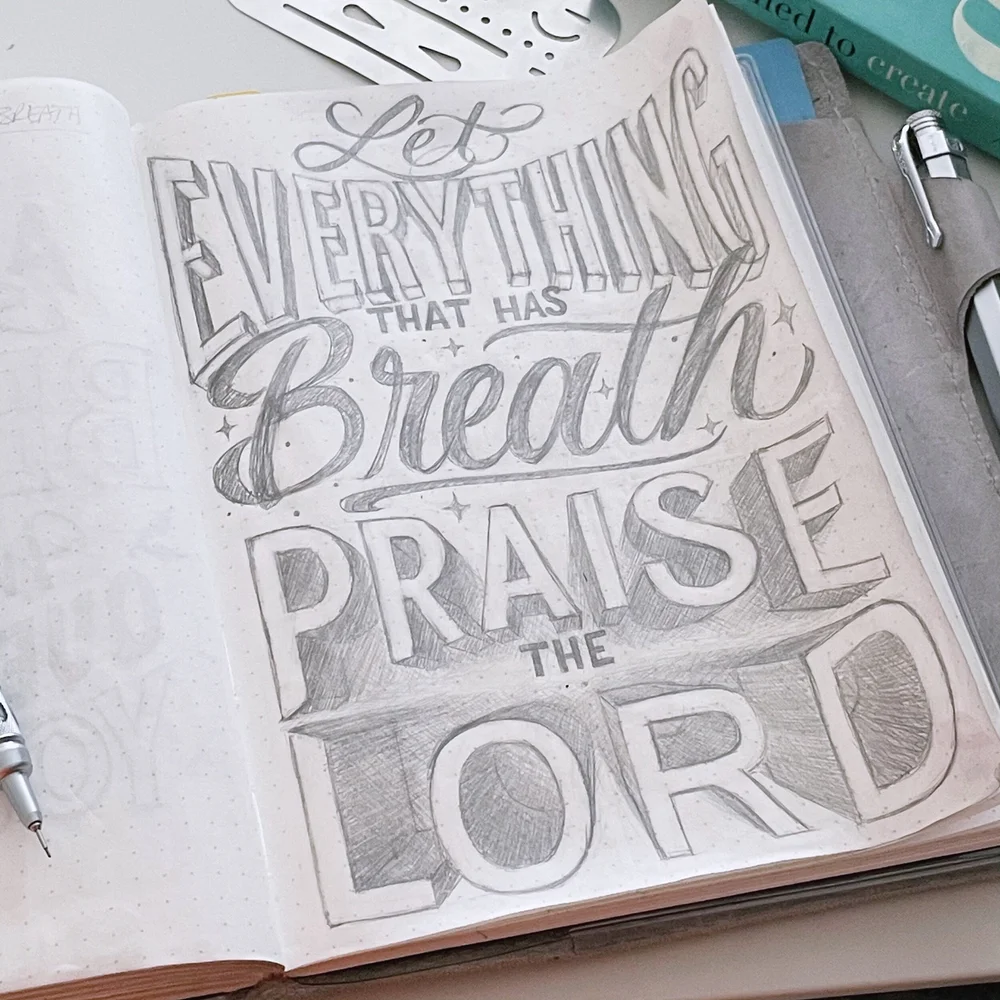 Let
EVERYTHING
THAT HAS
Breath
PRAISE
THE
LORD
BREATH
to create